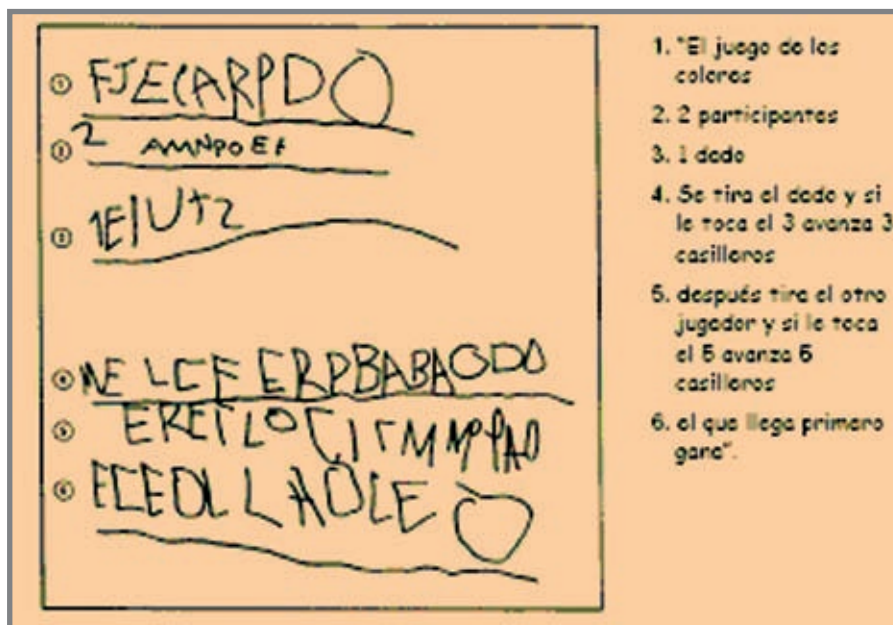 ① FJECARPDO
② 2 AMNPOEF
③ 1E/U+2
④ NE LCF ERPBABAODO
⑤ ERCTLO
⑥ ECEOLLAOLE
1. "El juego de los
colores
2. 2 participantes
3. 1 dado
4. Se tira el dado y si
le toca el 3 avanza 3
casilleros
5. después tira el otro
jugador y si le toca
el 5 avanza 5
casilleros
6. el que llega primero
gana".